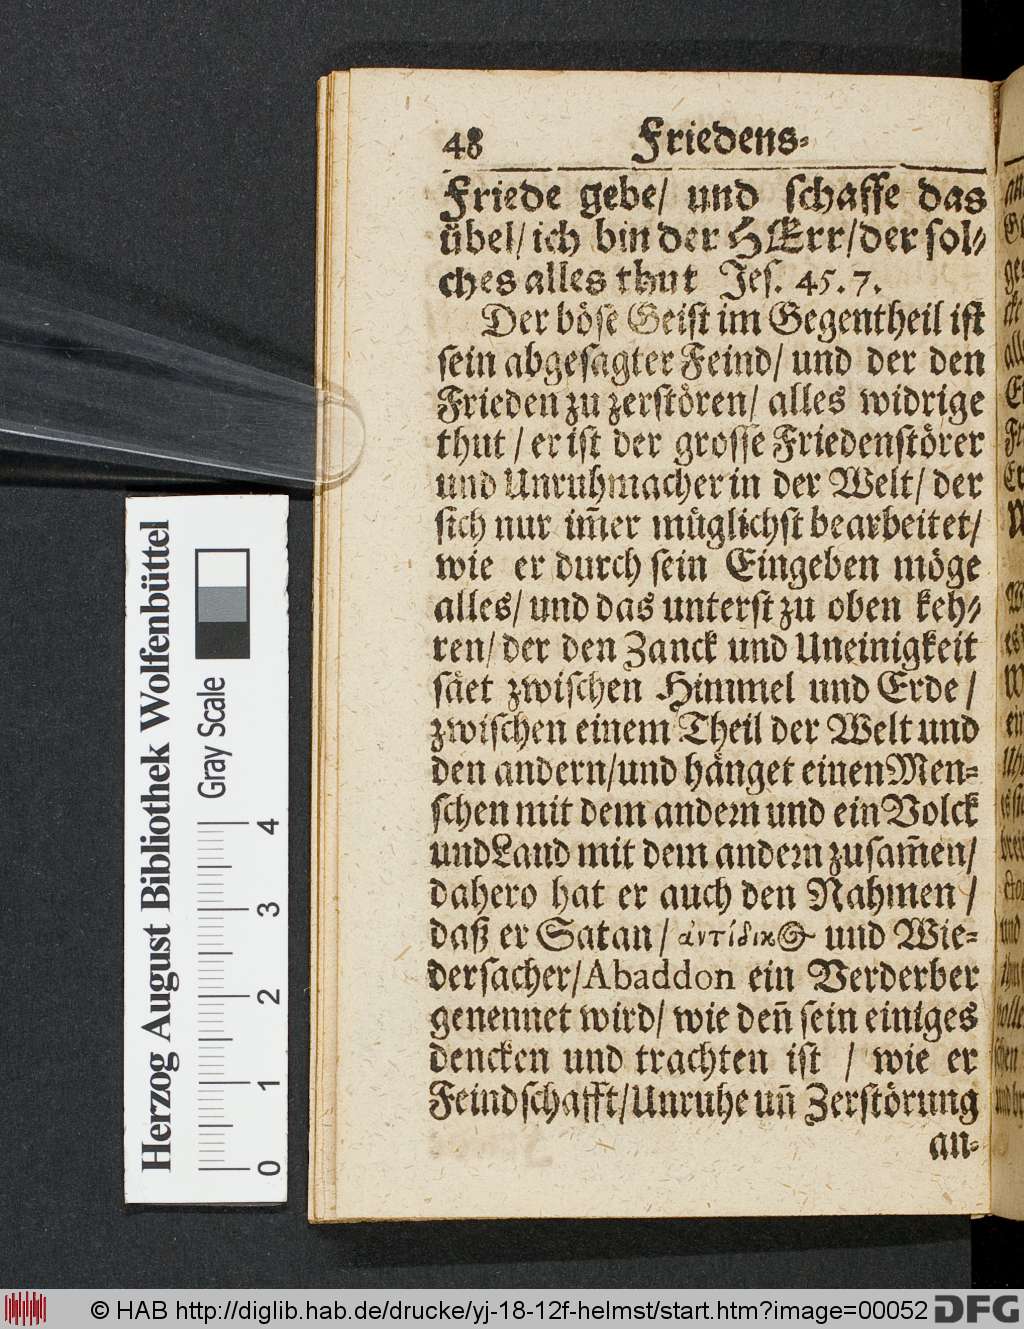 48 Friedens⸗
Friede gebe/ und ſchaffe das
übel/ ich bin der HErr/ der ſol⸗
ches alles thut Jeſ. 45. 7.
Der böſe Geiſt im Gegentheil iſt
ſein abgeſagter Feind/ und der den
Frieden zu zerſtören/ alles widrige
thut / er iſt der groſſe Friedenſtörer
und Unruhmacher in der Welt/ der
ſich nur im̃er müglichſt bearbeitet/
wie er durch ſein Eingeben möge
alles/ und das unterſt zu oben keh⸗
ren/ der den Zanck und Uneinigkeit
ſäet zwiſchen Himmel und Erde /
zwiſchen einem Theil der Welt und
den andern/und hänget einen Men⸗
ſchen mit dem andern und ein Volck
und Land mit dem andern zuſam̃en/
dahero hat er auch den Nahmen /
daß er Satan/ ἀντίδικος und Wie⸗
derſacher/Abaddon ein Verderber
genennet wird/ wie den̄ ſein einiges
dencken und trachten iſt / wie er
Feindſchafft/Unruhe un̄ Zerſtörung
an⸗
Herzog August Bibliothek Wolfenbüttel
Gray Scale
0 1 2 3 4
© HAB http://diglib.hab.de/drucke/yj-18-12f-helmst/start.htm?image=00052 DFG